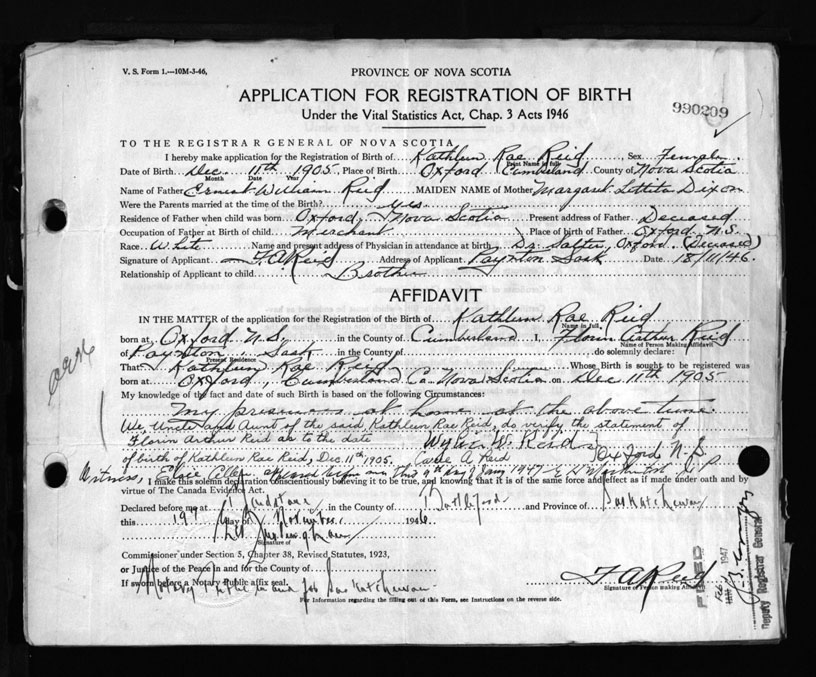 V. S. Form 1.—10M-3-46,
PROVINCE OF NOVA SCOTIA
APPLICATION FOR REGISTRATION OF BIRTH
990209
Under the Vital Statistics Act, Chap. 3 Acts 1946
TO THE REGISTRAR GENERAL OF NOVA SCOTIA
I hereby make application for the Registration of Birth of Kathleen Rae Reid Sex Female
Print Name in full
Date of Birth Dec. 11th 1905, Place of Birth Oxford Cumberland County of Nova Scotia
Month Date Year
Name of Father Ernest William Reid MAIDEN NAME of Mother Margaret Letitia Dixon
Were the Parents married at the time of the Birth? Yes
Residence of Father when child was born Oxford, Nova Scotia Present address of Father Deceased
Occupation of Father at Birth of child Merchant Place of birth of Father Oxford N.S.
Race White Name and present address of Physician in attendance at birth Dr. Salter, Oxford (Deceased)
Signature of Applicant F. A. Reid Address of Applicant Paynton Sask Date 18/11/46.
Relationship of Applicant to child Brother
AFFIDAVIT
IN THE MATTER of the application for the Registration of the Birth of Kathleen Rae Reid
Name in full
born at Oxford N.S. in the County of Cumberland I, Florin Arthur Reid
Name of Person Making Affidavit
of Paynton Sask in the County of do solemnly declare:
Present Residence
That Kathleen Rae Reid Whose Birth is sought to be registered was
born at Oxford, Cumberland Co. Nova Scotia on Dec 11th 1905
My knowledge of the fact and date of such Birth is based on the following Circumstances:
My presence at home at the above time
We Uncle and Aunt of the said Kathleen Rae Reid, do verify the statement of
Florin Arthur Reid as to the date
of birth of Kathleen Rae Reid, Dec. 11th 1905. A Reid Oxford N.S.
Witness, 1947
I make this solemn declaration conscientiously believing it to be true, and knowing that it is of the same force and effect as if made under oath and by
virtue of The Canada Evidence Act.
Declared before me at in the County of Battleford and Province of Saskatchewan
this 19th day of November 1946
Signature of
Commissioner under Section 5, Chapter 38, Revised Statutes, 1923,
or Justice of the Peace in and for the County of
If sworn before a Notary Public affix seal.
Notary Public in and for Saskatchewan
F. A. Reid
Signature of Person Making Affidavit
For Information regarding the filling out of this Form, see Instructions on the reverse side.
1947
Deputy Registrar General